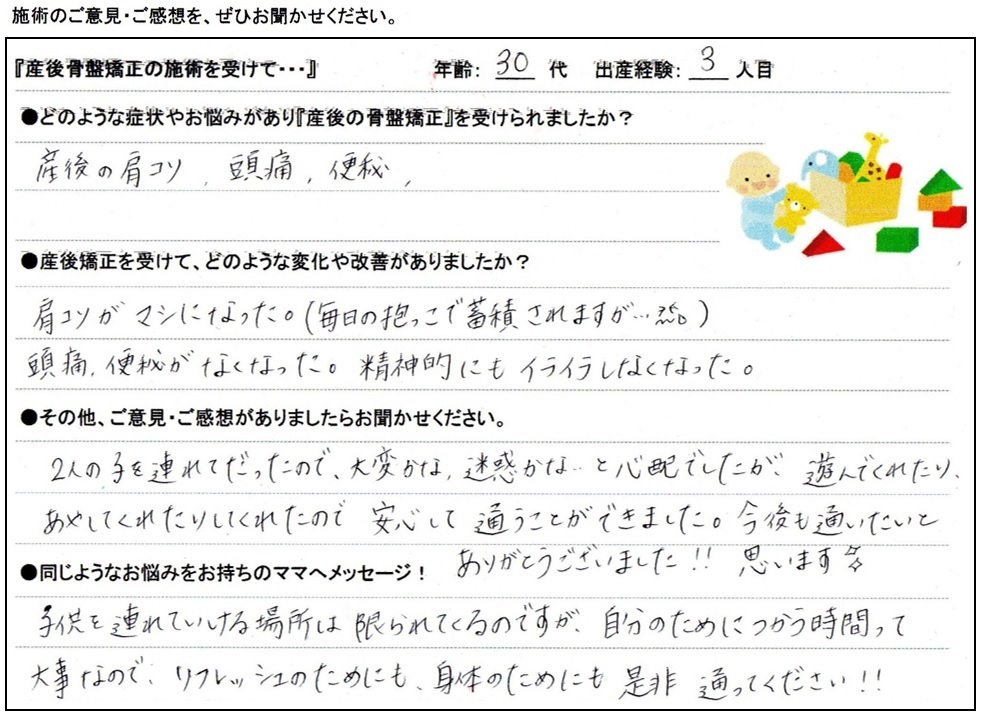 施術のご意見・ご感想を、ぜひお聞かせください。
『産後骨盤矯正の施術を受けて・・・』 年齢： 30 代 出産経験： 3 人目
●どのような症状やお悩みがあり『産後の骨盤矯正』を受けられましたか？
産後の肩コリ , 頭痛 , 便秘 ,
●産後矯正を受けて、どのような変化や改善がありましたか？
肩コリが マシになった。(毎日の抱っこで蓄積されますが…)
頭痛, 便秘が なくなった。 精神的にも イライラしなくなった。
●その他、ご意見・ご感想がありましたらお聞かせください。
2人の子を連れてだったので、大変かな, 迷惑かな… と心配でしたが、 遊んでくれたり、
あやしてくれたりしてくれたので 安心して 通うことができました。今後も通いたいと
思います☆
ありがとうございました!!
●同じようなお悩みをお持ちのママへメッセージ！
子供を連れていける場所は 限られてくるのですが、 自分のためにつかう時間って
大事なので、 リフレッシュのためにも、身体のためにも 是非 通ってください!!